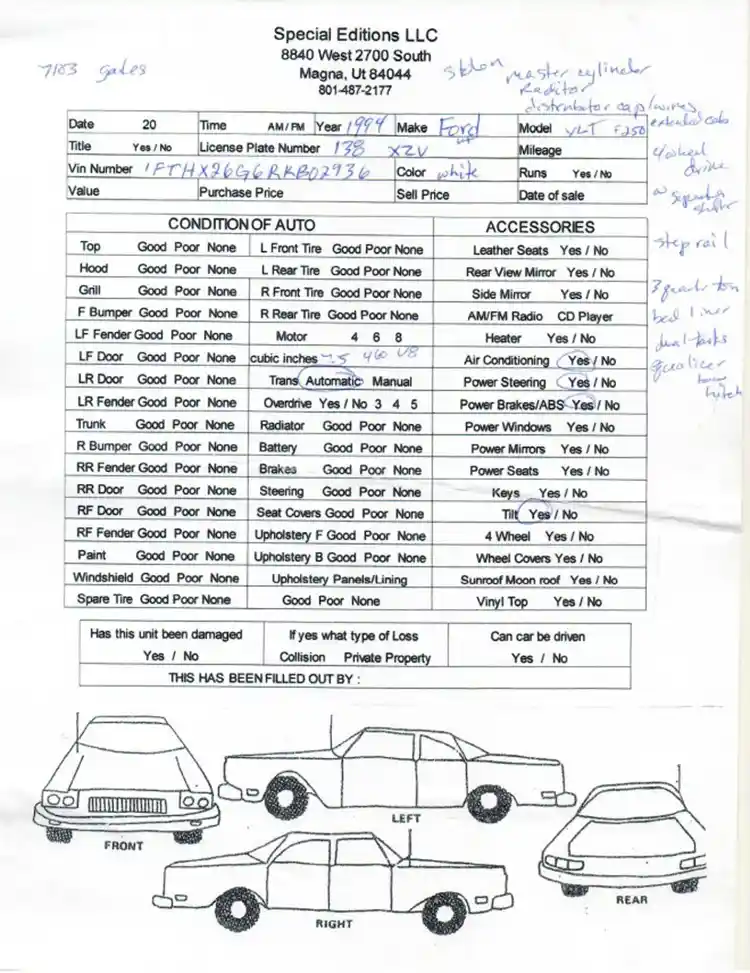 Special Editions LLC
8840 West 2700 South
7183 gates
Magna, Ut 84044
801-487-2177
master cylinder
Raditor
distributor cap/wires
extended cab
4 wheel
drive
step rail
bed liner
dual tanks
Date 20 Time AM/FM Year 1994 Make Ford Model XLT F250
Title Yes / No License Plate Number 138 XZV Mileage
Vin Number 1FTHX26G6RKB02936 Color white Runs Yes / No
Value Purchase Price Sell Price Date of sale
CONDITION OF AUTO ACCESSORIES
Top Good Poor None L Front Tire Good Poor None Leather Seats Yes / No
Hood Good Poor None L Rear Tire Good Poor None Rear View Mirror Yes / No
Grill Good Poor None R Front Tire Good Poor None Side Mirror Yes / No
F Bumper Good Poor None R Rear Tire Good Poor None AM/FM Radio CD Player
LF Fender Good Poor None Motor 4 6 8 Heater Yes / No
LF Door Good Poor None cubic inches 7.5 460 V8 Air Conditioning Yes / No
LR Door Good Poor None Trans Automatic Manual Power Steering Yes / No
LR Fender Good Poor None Overdrive Yes / No 3 4 5 Power Brakes/ABS Yes / No
Trunk Good Poor None Radiator Good Poor None Power Windows Yes / No
R Bumper Good Poor None Battery Good Poor None Power Mirrors Yes / No
RR Fender Good Poor None Brakes Good Poor None Power Seats Yes / No
RR Door Good Poor None Steering Good Poor None Keys Yes / No
RF Door Good Poor None Seat Covers Good Poor None Tilt Yes / No
RF Fender Good Poor None Upholstery F Good Poor None 4 Wheel Yes / No
Paint Good Poor None Upholstery B Good Poor None Wheel Covers Yes / No
Windshield Good Poor None Upholstery Panels/Lining Sunroof Moon roof Yes / No
Spare Tire Good Poor None Good Poor None Vinyl Top Yes / No
Has this unit been damaged If yes what type of Loss Can car be driven
Yes / No Collision Private Property Yes / No
THIS HAS BEEN FILLED OUT BY :
LEFT
FRONT
REAR
RIGHT